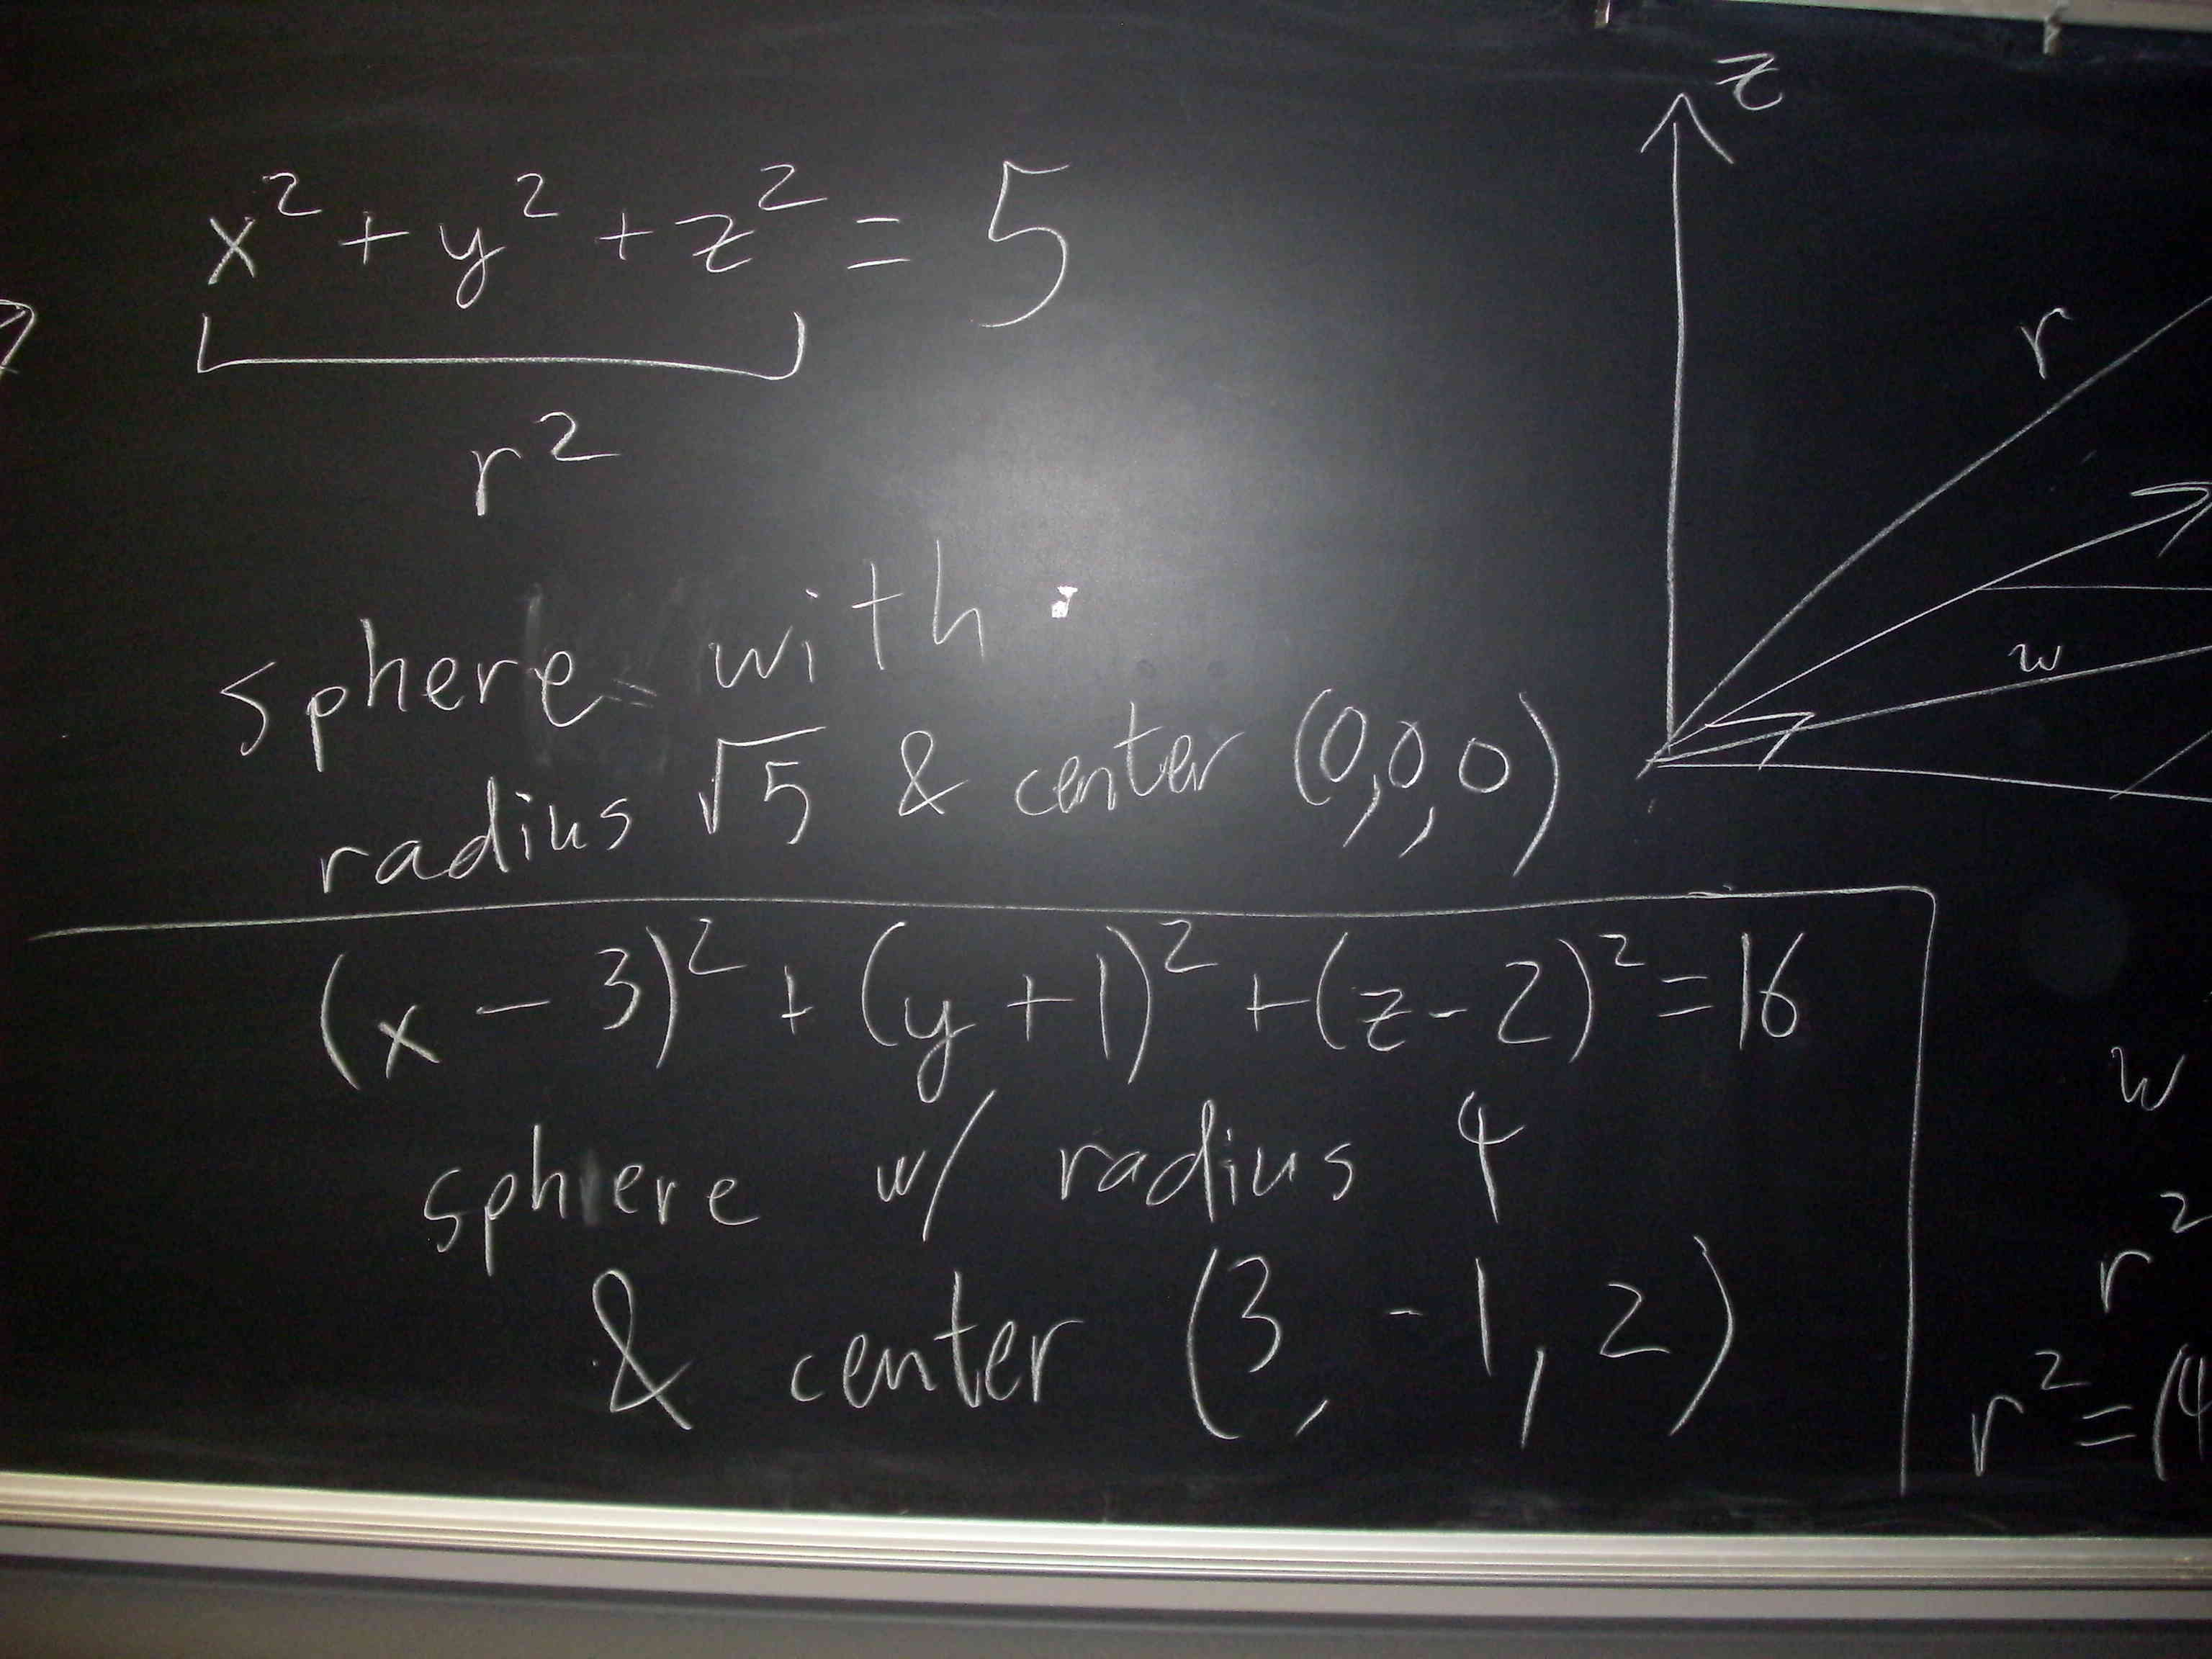 x² + y² + z² = 5
r²
sphere with
radius √5 & center (0,0,0)
(x - 3)² + (y + 1)² + (z - 2)² = 16
sphere w/ radius 4
& center (3, -1, 2)
z
r
w
w
r²
r² = (4